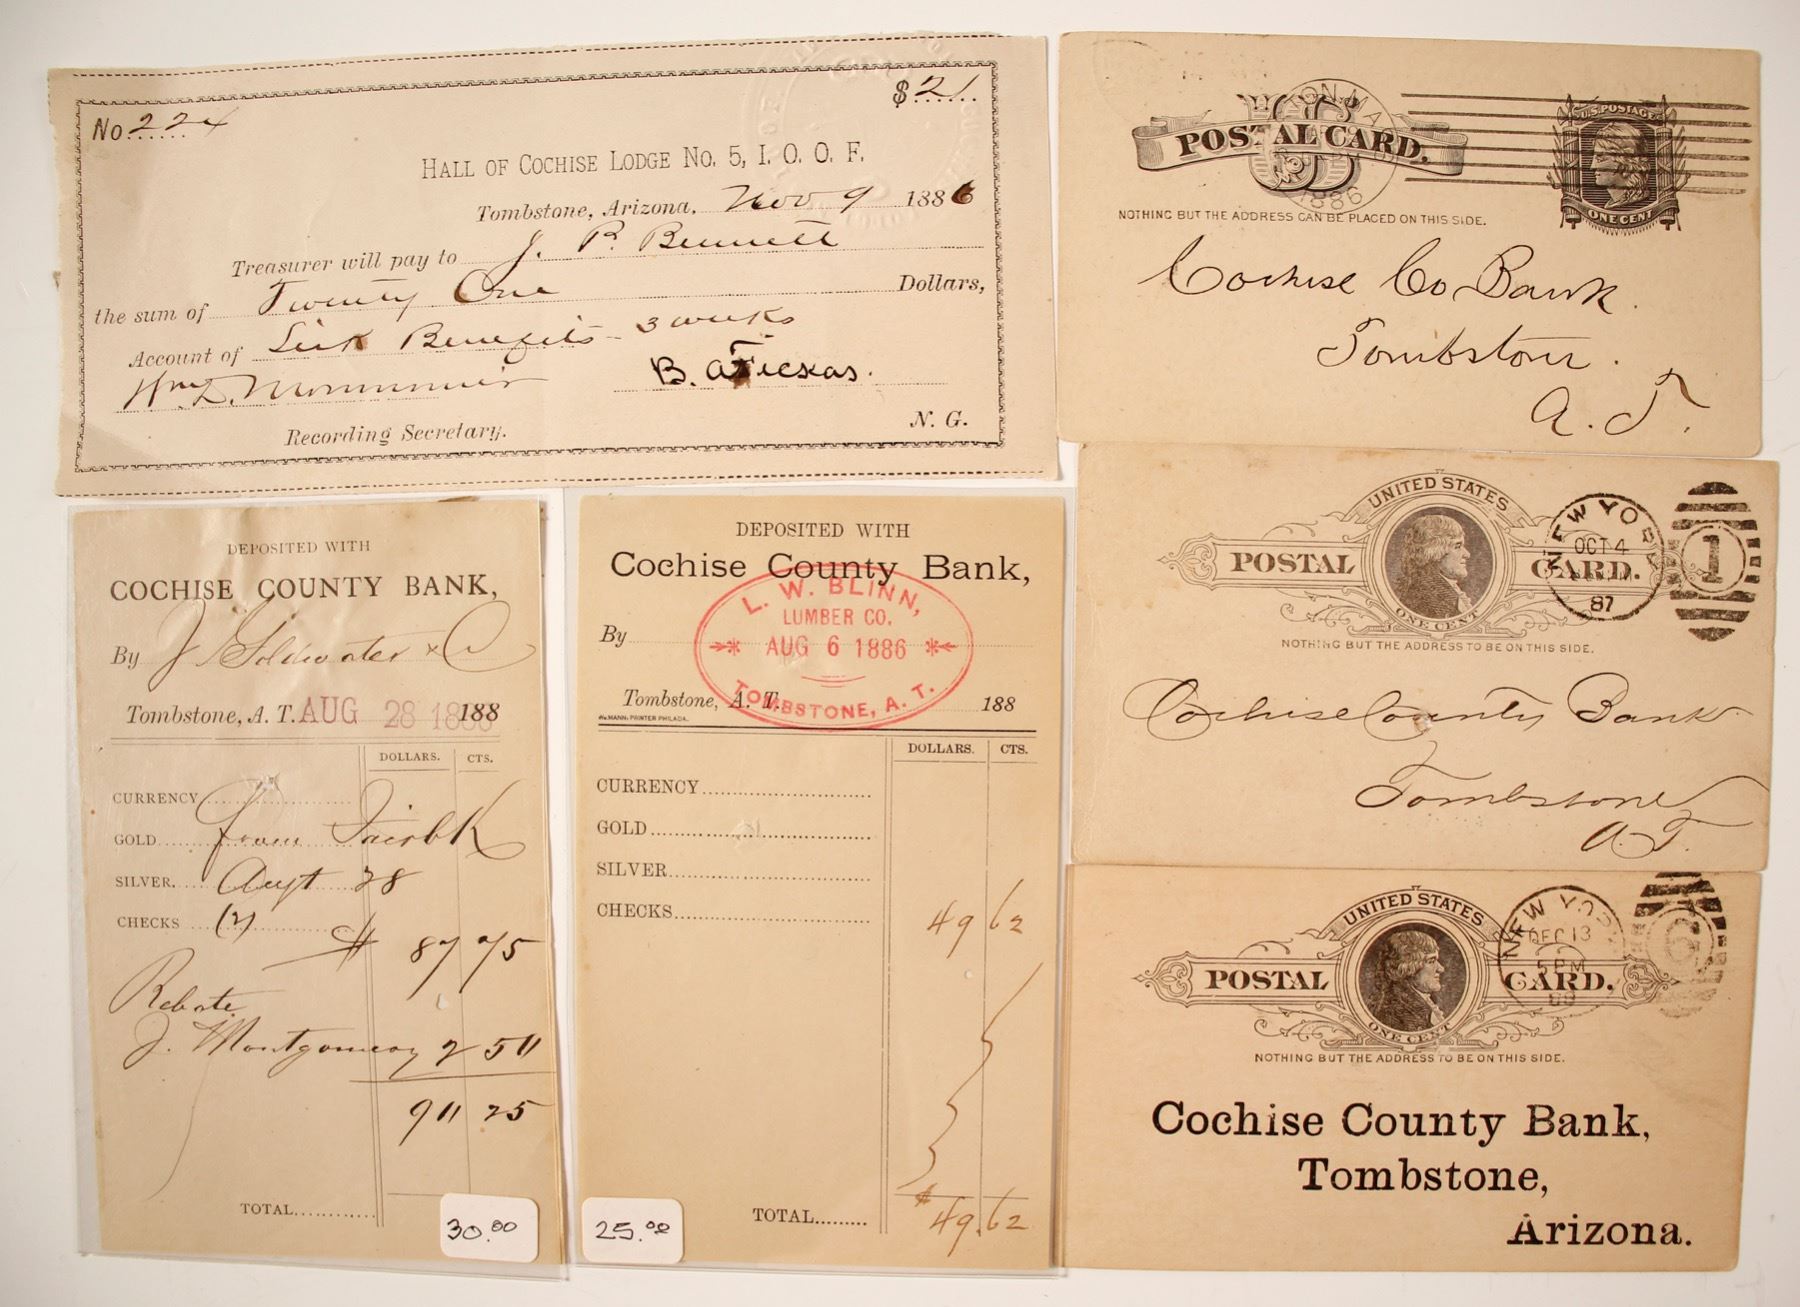 No. 224
$ 21
HALL OF COCHISE LODGE No. 5, I. O. O. F.
Tombstone, Arizona, Nov 9 1886
Treasurer will pay to J. P. Bennett
the sum of Twenty One Dollars,
Account of Sick Benefits - 3 weeks
Wm D.
B. A
Recording Secretary.
N. G.
DEPOSITED WITH
COCHISE COUNTY BANK,
By J Goldwater & Co
Tombstone, A. T. AUG 28 188
DOLLARS. CTS.
CURRENCY
GOLD from
SILVER. Augt 28
CHECKS (2)
$ 87 75
Rebate
J. Montgomery 2 50
90 25
TOTAL
30.00
DEPOSITED WITH
Cochise County Bank,
By
L. W. BLINN,
LUMBER CO.
AUG 6 1886
TOMBSTONE, A. T.
Tombstone, A. T. 188
WM. MANN, PRINTER PHILADA.
DOLLARS. CTS.
CURRENCY
GOLD
SILVER
CHECKS 49 62
TOTAL $ 49.62
25.00
US
POSTAL CARD.
1886
U.S. POSTAGE
ONE CENT
NOTHING BUT THE ADDRESS CAN BE PLACED ON THIS SIDE.
Cochise Co Bank.
Tombstone.
A. T.
UNITED STATES
POSTAL CARD.
ONE CENT
NEW YORK
OCT 4
87
1
NOTHING BUT THE ADDRESS TO BE ON THIS SIDE.
Cochise County Bank
Tombstone
A. T.
UNITED STATES
POSTAL CARD.
ONE CENT
NEW YORK
DEC 13
5 PM
6
NOTHING BUT THE ADDRESS TO BE ON THIS SIDE.
Cochise County Bank,
Tombstone,
Arizona.